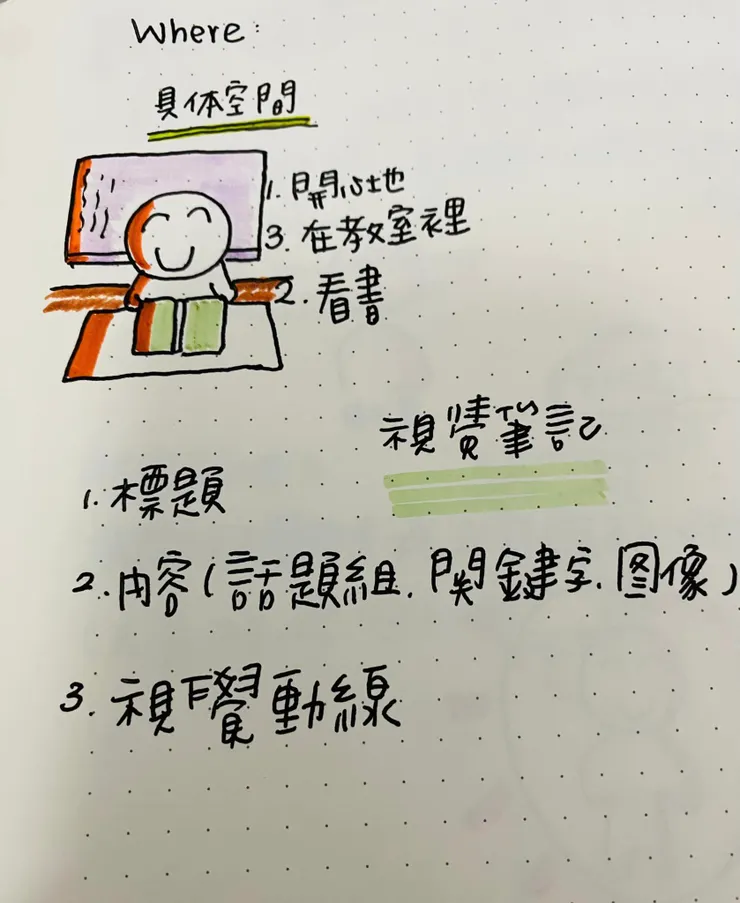 Where:
具体空間
1. 開心地
3. 在教室裡
2. 看書
視覺筆記
1. 標題
2. 內容(話題組. 関鍵字. 图像)
3. 視覺動線